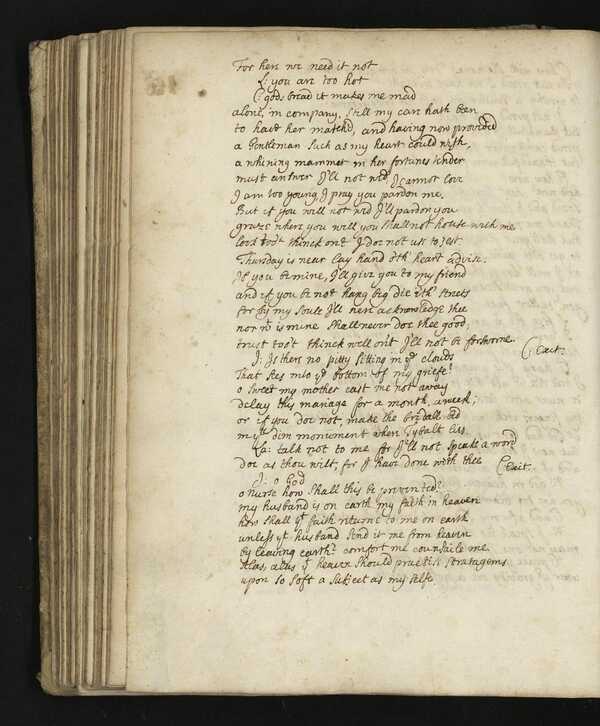 For here we need it not
L: you are too hot
C: gods bread it makes me mad
alone, in company, still my care hath been
to have her match'd, and having now provided
a Gentleman such as my heart could wish,
a whining mammet in her fortunes tender
must answer I'll not wed, I cannot love
I am too young, I pray you pardon me.
But if you will not wed I'll pardon you
graze where you will you shall not house with me
look too't thinck on't I doe not use to jest
Thursday is near lay hand oth heart advise.
If you be mine, I'll give you to my friend
and if you be not hang beg die ith streets
for by my soule I'll nere acknowledge thee
nor wt is mine shall never doe thee good,
trust too't thinck well on't I'll not be forsworne. (Exit.
J: Is there no pitty sitting in ye clouds
That sees into ye bottom of my griefe?
o sweet my mother cast me not away
delay this mariage for a month, a week;
or if you doe not, make the bridall bed
in yt dim monument when Tybalt lies.
La: talk not to me for I'll not speake a word
doe as thou wilt, for I have done with thee (Exit.
J: o God
o Nurse how shall this be prevented?
my husband is on earth my faith in heaven
how shall yt faith returne to me on earth
unless yt husband send it me from heaven
by leaving earth? comfort me counsaile me
Alas, alas yt heaven should practise stratagems
upon so soft a subject as my selfe